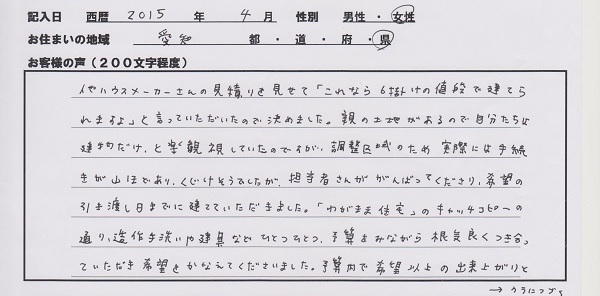 記入日 西暦 2015 年 4 月 性別 男性 ・ 女性
お住まいの地域 愛知 都 ・ 道 ・ 府 ・ 県
お客様の声(200文字程度)
他ハウスメーカーさんの見積りを見せて「これなら6掛けの値段で建てら
れますよ」と言っていただいたので決めました。親の土地があるので自分たちは
建物だけ、と楽観視していたのですが、調整区域のため実際には手続
きが山ほどあり、くじけそうでしたが、担当者さんががんばってくださり、希望の
引き渡し日までに建てていただきました。「わがまま住宅」のキャッチコピーの
通り、造作手洗いや建具などひとつひとつ、予算をみながら根気良くつき合っ
ていただき希望をかなえてくださいました。予算内で希望以上の出来上がりと
→ うらにつづく